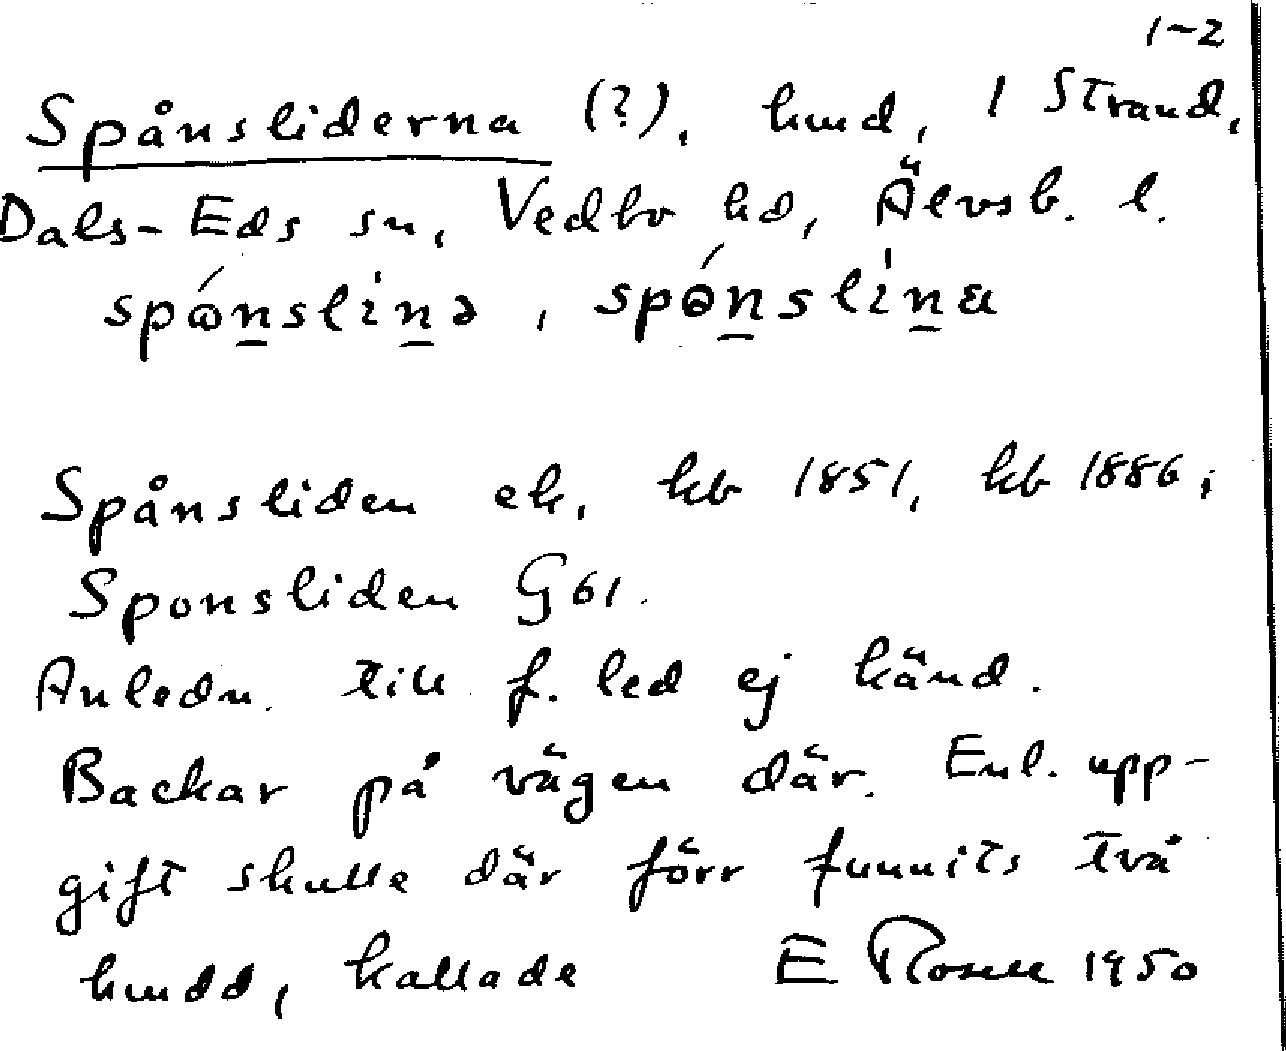 1-2
Spånsliderna (?), hmd, 1 Strand,
Dals-Eds sn, Vedbo hd, Älvsb. l.
spɷ́n̲slin̲ə, spɵ́n̲slin̲a
Spånsliden ek, kb 1851, kb 1886;
Sponsliden G61.
Anledn. till f. led ej känd.
Backar på vägen där. Enl. upp-
gift skulle där förr funnits två
hmdd, kallade E Rosell 1950